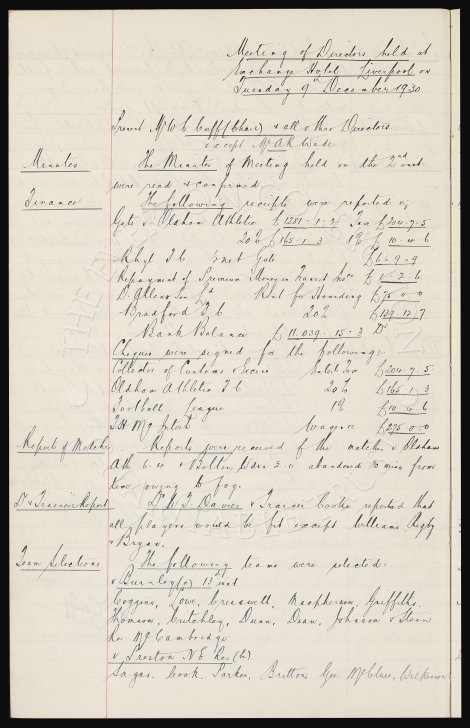 Meeting of Directors held at
Exchange Hotel Liverpool on
Tuesday 9th December 1930
Present Mr W C Cuff (Chair) & all other Directors
except Mr A R Wade
Minutes The Minutes of Meeting held on the 2nd inst
were read & confirmed
Finance The following receipts were reported
Gate v Oldham Athletic £1281-1-2 Tax £204-7-5
20% £165-1-3 1% £10-4-6
Rhyl F C Gate £6-9-9
Repayment of Insurance £1-2-6
Rent for Hoarding £75-0-0
Bradford F C 20% £139-17-7
Bank Balance £11,039-15-3 Dr
Cheques were signed for the following:
Collector of Customs & Excise Entts Tax £204-7-5
Oldham Athletic F C 20% £165-1-3
Football League 1% £10-4-6
T H McIntosh Wages £275-0-0
Report of Matches Reports were received of the matches v Oldham
Ath 6-4 & Bolton Wdrs 3-0 abandoned 70 mins from
time owing to fog.
Dr & Trainer's Report Dr W F Davies & Trainer Cooke reported that
all players would be fit except Williams Rigby
& Bryan.
Team Selections The following teams were selected:
v Burnley (a) 13th inst
Coggins, Lowe, Cresswell, Macpherson, Griffiths,
Thomson, Critchley, Dunn, Dean, Johnson & Stein
Res McCambridge
v Preston N E Res (h)
Sagar, Cook, Parker, Britton, Gee, McClure, Wilkinson